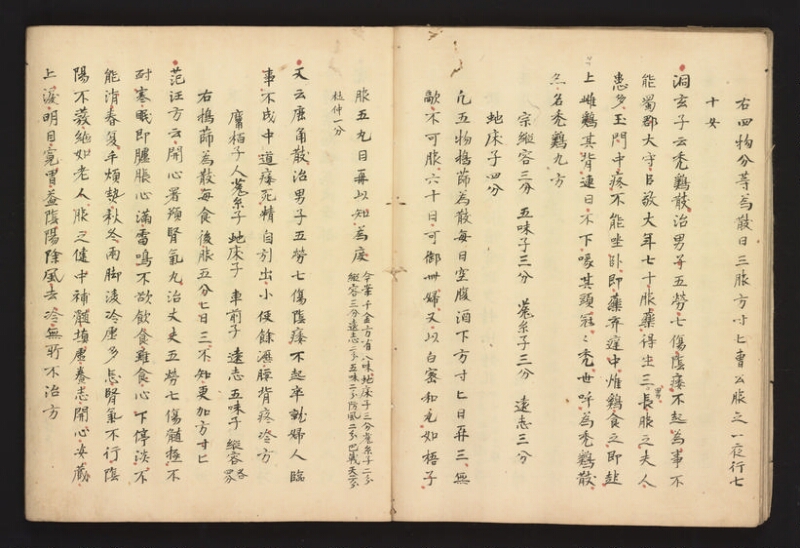 右四物分等為散日三服方寸匕曹公服之一夜行七
十女
洞玄子云禿鷄散治男子五勞七傷陰痿不起為事不
能蜀郡大守呂敬大年七十服藥得生三男長服之夫人
患多玉門中疼不能坐臥即藥弃遅中雄鷄食之即起
上雌鷄其背連日不下喙其頭冠〻禿世呼為禿鷄散
亦名禿鷄丸方
宗縱容三分 五味子三分 菟糸子三分 遠志三分
虵床子四分
凢五物搗篩為散每日空腹酒下方寸匕日再三無
敵不可服六十日可御卌婦又以白蜜和丸如梧子
服五丸日再以知為度
今案千金方有八味虵床子三分菟糸子二分
縱容三分遠志二分五味二分防風二分巴戟天二分
杜仲一分
又云鹿角散治男子五勞七傷陰痿不起卒就婦人臨
事不成中道痿死精自引出小便餘瀝腰背疼冷方
鹿角 栢子人 菟糸子 虵床子 車前子 遠志 五味子 縱容各四分
右搗篩為散每食後服五分匕日三不知更加方寸匕
范汪方云開心署預腎氣丸治丈夫五勞七傷髓極不
耐寒眠即臚脹心滿雷鳴不欲飲食雖食心下停淡不
能消春夏手煩熱秋冬兩脚淩冷虛多忘腎氣不行陰
陽不發絶如老人服之健中補髓填虛養志開心安藏
止淚明目寬胃益陰陽除風去冷無所不治方